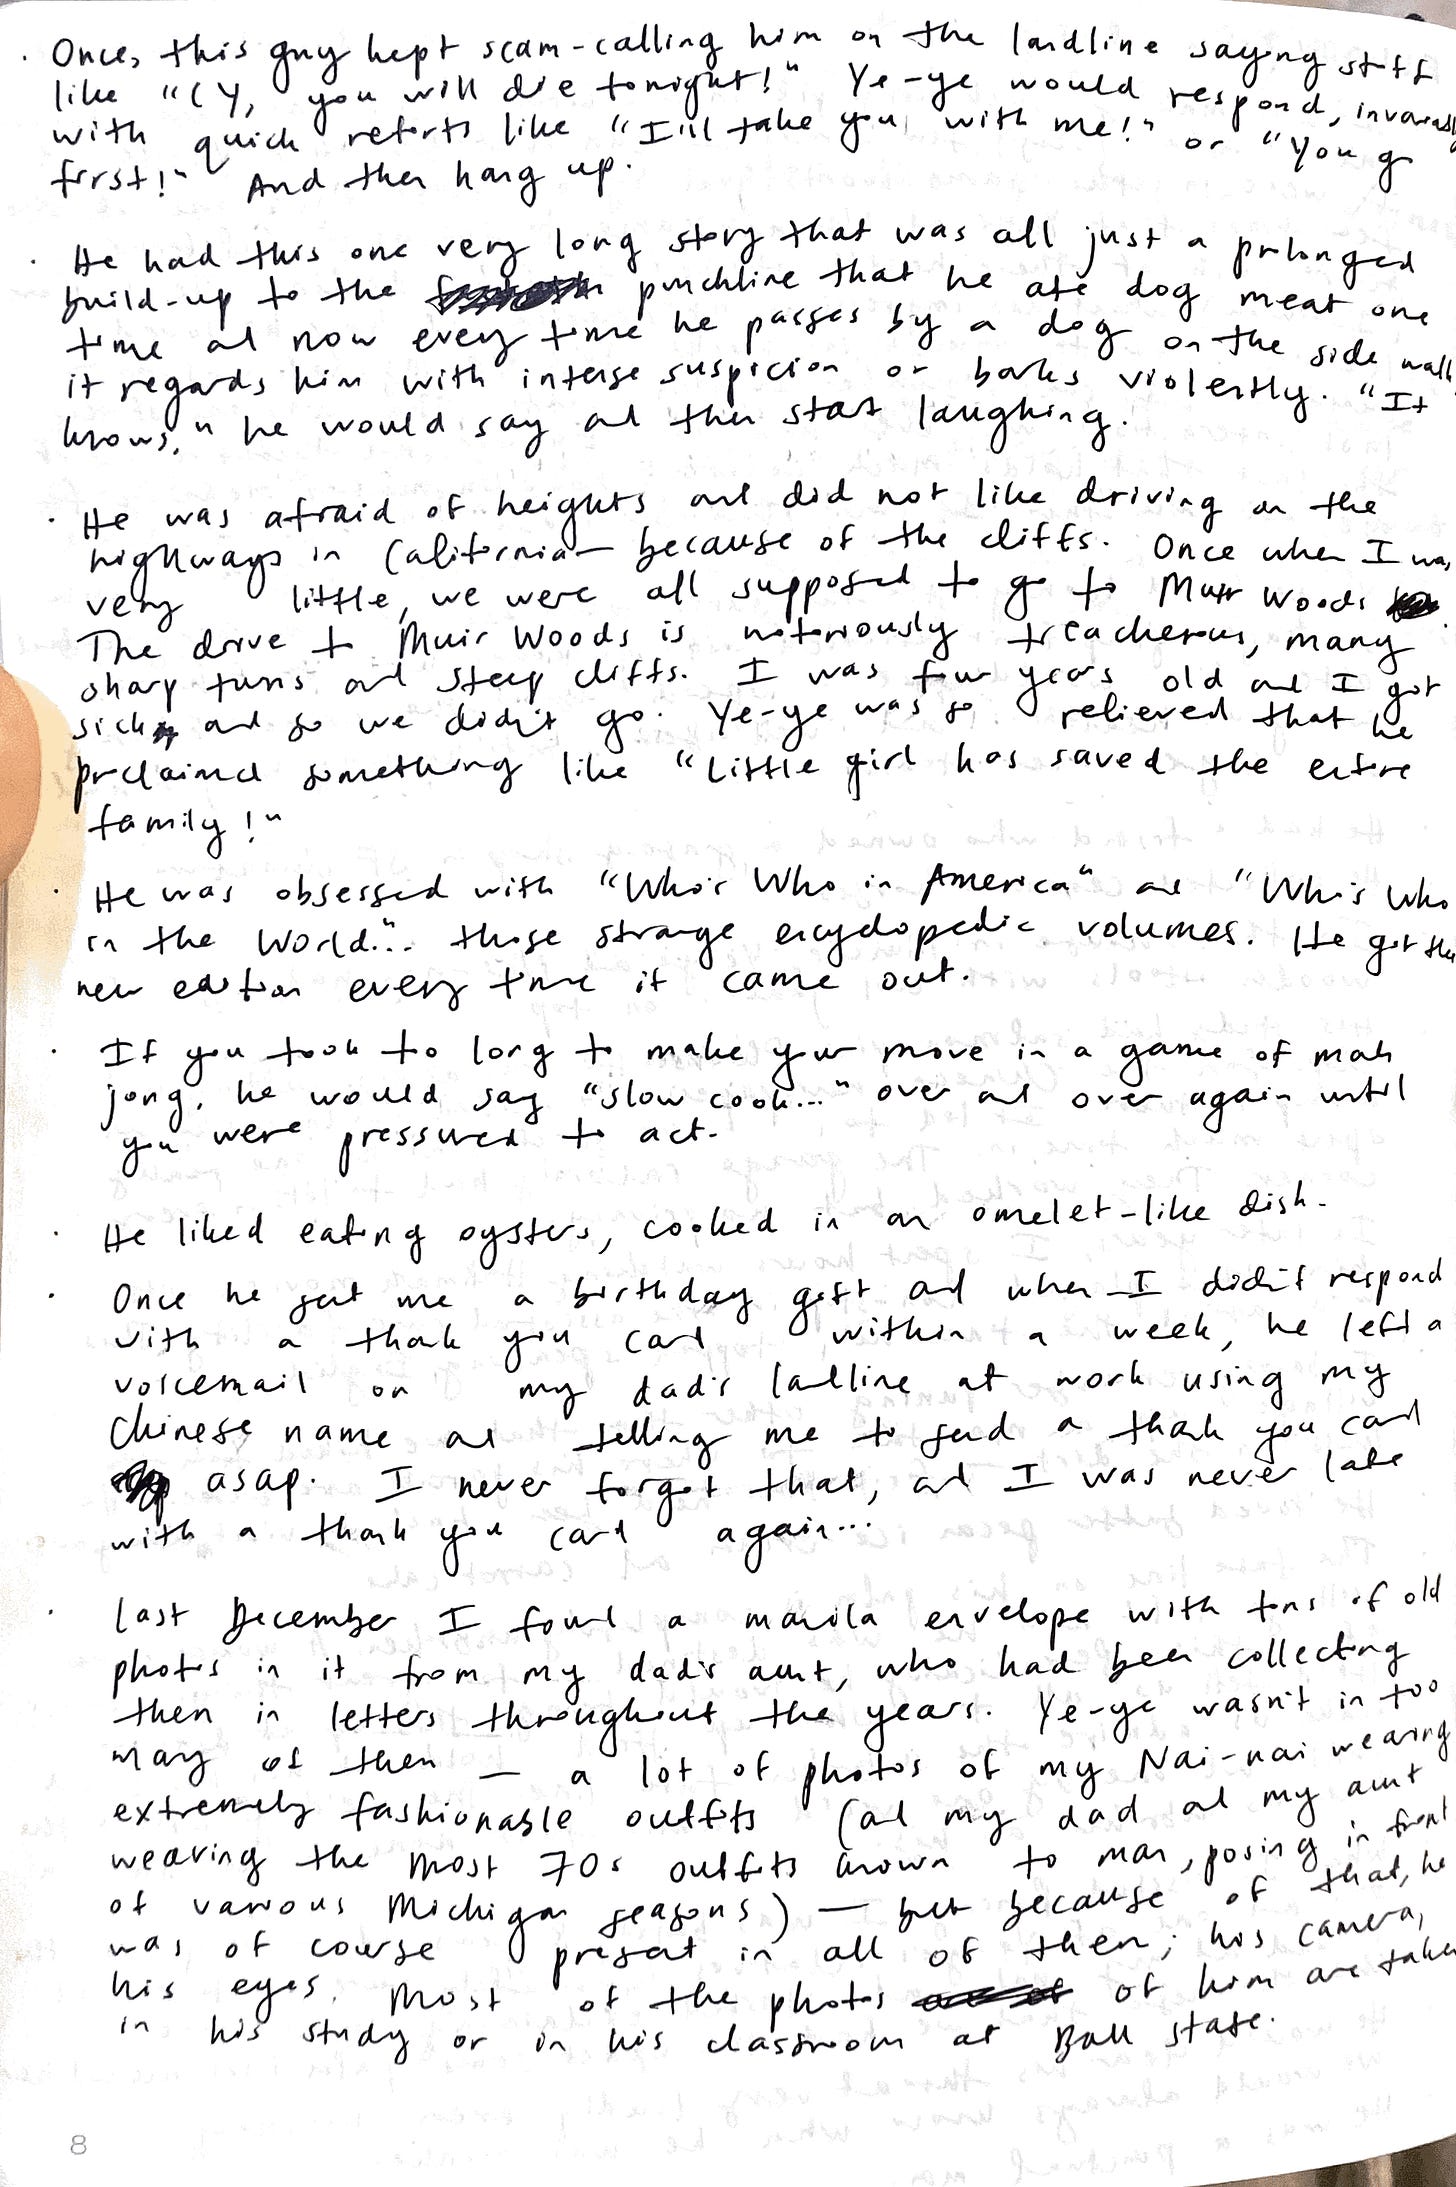 · Once, this guy kept scam-calling him on the landline saying stuff
like "CY, you will die tonight!" Ye-ye would respond, invariably
with quick retorts like "I'll take you with me!" or "You go
first!" And then hang up.
· He had this one very long story that was all just a prolonged
build-up to the punchline that he ate dog meat one
time and now every time he passes by a dog on the side walk
it regards him with intense suspicion or barks violently. "It
knows," he would say and then start laughing.
· He was afraid of heights and did not like driving on the
highways in California — because of the cliffs. Once when I was
very little, we were all supposed to go to Muir Woods.
The drive to Muir Woods is notoriously treacherous, many
sharp turns and steep cliffs. I was four years old and I got
sick and so we didn't go. Ye-ye was so relieved that he
proclaimed something like "Little girl has saved the entire
family!"
· He was obsessed with "Who's Who in America" and "Who's Who
in the World"... those strange encyclopedic volumes. He got the
new edition every time it came out.
· If you took to long to make your move in a game of mah
jong, he would say "slow cook..." over and over again until
you were pressured to act.
· He liked eating oysters, cooked in an omelet-like dish.
· Once he sent me a birthday gift and when I didn't respond
with a thank you card within a week, he left a
voicemail on my dad's landline at work using my
Chinese name and telling me to send a thank you card
asap. I never forgot that, and I was never late
with a thank you card again...
· Last December I found a manila envelope with tons of old
photos in it from my dad's aunt, who had been collecting
them in letters throughout the years. Ye-ye wasn't in too
many of them — a lot of photos of my Nai-nai wearing
extremely fashionable outfits (and my dad and my aunt
wearing the most 70s outfits known to man, posing in front
of various Michigan seasons) — but because of that, he
was of course present in all of them; his camera,
his eyes. Most of the photos of him are taken
in his study or in his classroom at Ball State.
8